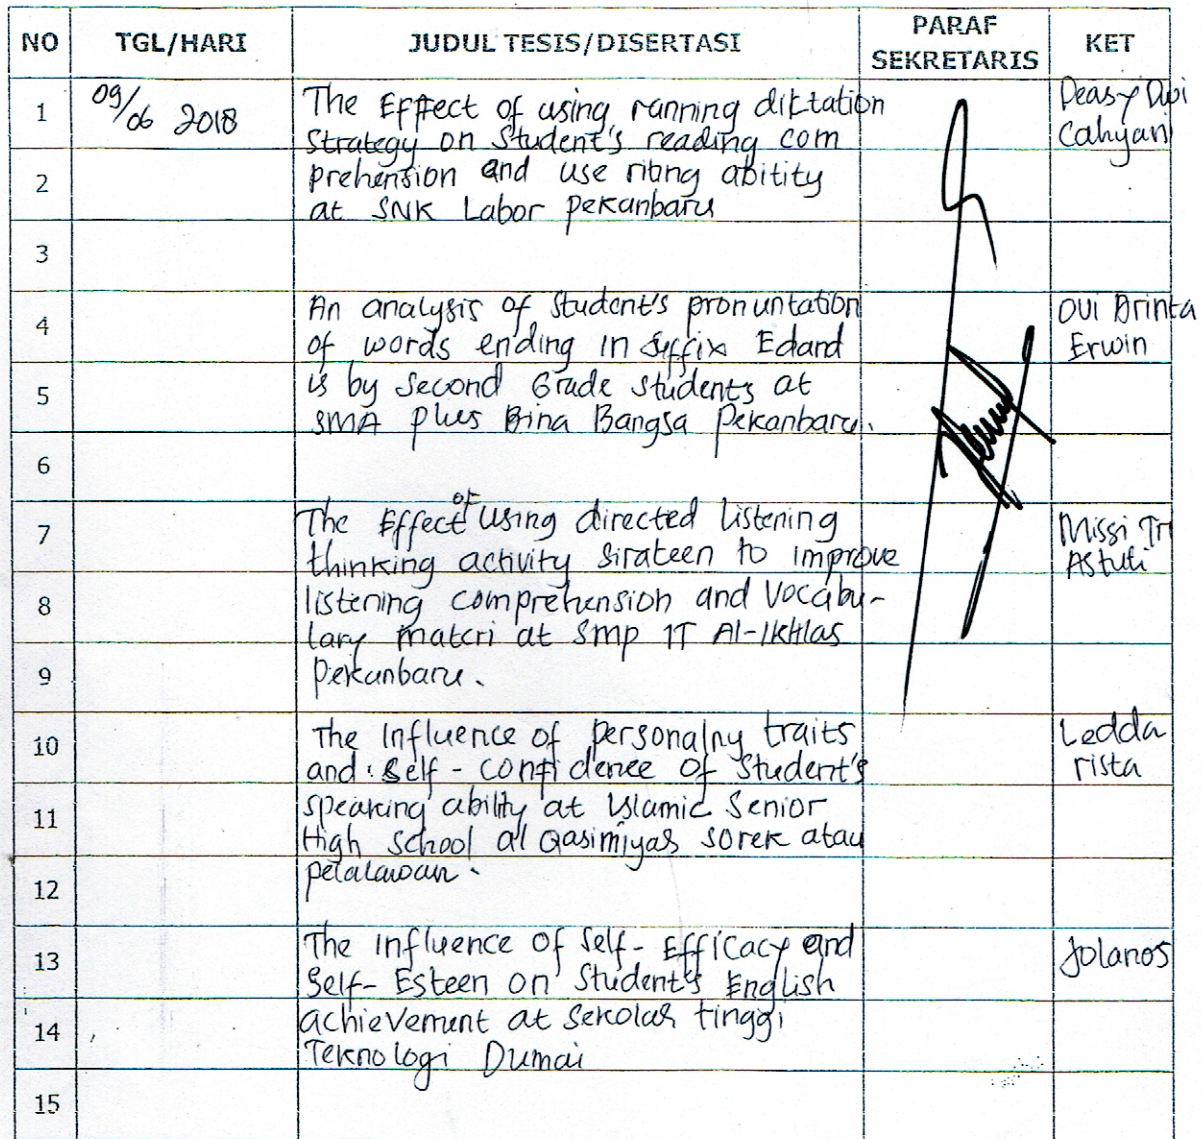 NO TGL/HARI JUDUL TESIS/DISERTASI PARAF SEKRETARIS KET
1 09/06 2018 The Effect of using running diktation Deasy Dwi
Strategy on Student's reading com Cahyani
2 prehension and use riting abitity
at SNK Labor Pekanbaru
3
4 An analysis of student's pronuntation Ovi Brinta
of words ending in Suffix Edand Erwin
5 is by Second Grade students at
SMA plus Bina Bangsa Pekanbaru.
6
7 The Effect of using directed listening Missi Tri
thinking activity sirateen to improve Astuti
8 listening comprehension and Vocabu-
lary materi at Smp IT Al-Ikhlas
9 Pekanbaru.
10 The Influence of personalny traits Ledda
and self-confidence of student's rista
11 speaking ability at Islamic Senior
High School al Qasimiyas sorek atau
12 pelalawan.
13 The Influence of Self-Efficacy and Jolanos
Self-Esteen on Student's English
14 achievement at Sekolas tinggi
Teknologi Dumai
15